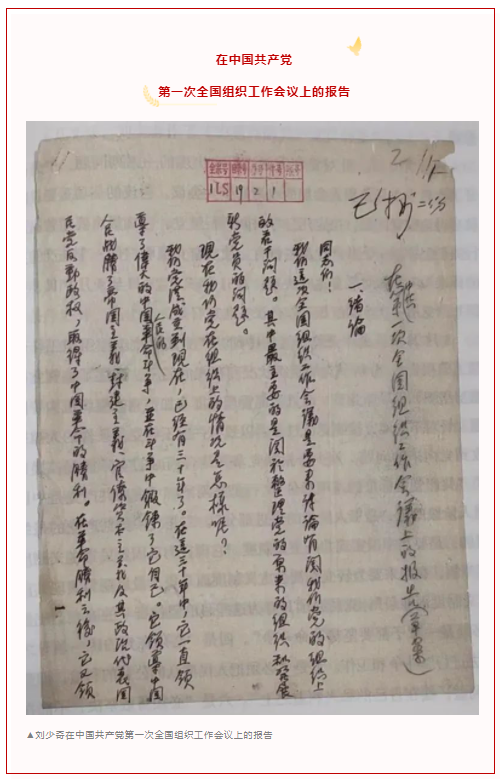 在中国共产党
第一次全国组织工作会议上的报告
1LS 19 2 1
在中共第一次全国组织工作会議上的报告（草案）
一、绪論
同志们！
我们这次全国组织工作会議是要来讨論有関我们党的组织上
的若干问題。其中最主要的是関於整理党的原来的组织和发展
新党员的问題。
现在我们党在组织上的情况是怎樣呢？
我们党從成立到现在，已经有三十年了。在這三十年中，它一直领
導了偉大的中国人民的革命斗争，並在斗争中锻鍊了它自己。它领導中国
人民打倒了帝国主義、封建主義、官僚资本主義及其政治代表国
民党反动政权，取得了中国革命的胜利。在革命勝利之後，它又领
▲刘少奇在中国共产党第一次全国组织工作会议上的报告